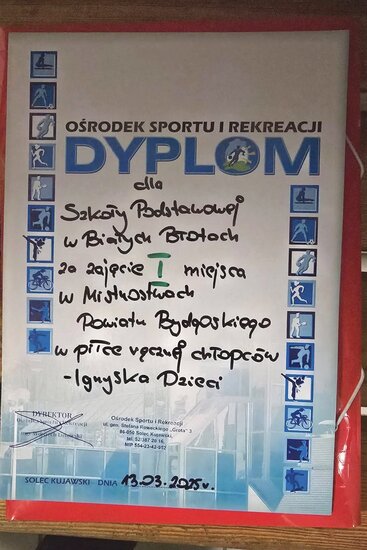 OŚRODEK SPORTU I REKREACJI
DYPLOM
dla
Szkoły Podstawowej
w Białych Błotach
za zajęcie I miejsca
w Mistrzostwach
Powiatu Bydgoskiego
w piłce ręcznej chłopców
-Igrzyska Dzieci
DYREKTOR
Ośrodek Sportu i Rekreacji
ul. gen. Stefana Roweckiego „Grota" 3
86-050 Solec Kujawski,
NIP 554-23-42-952
SOLEC KUJAWSKI DNIA 13.03.2025r.